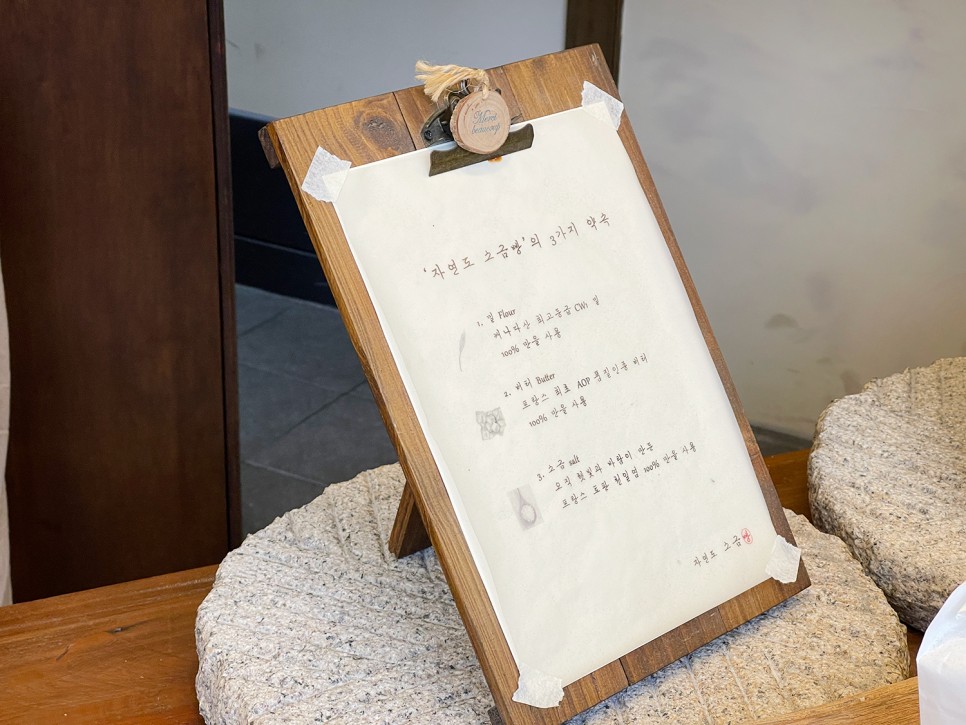 Merci
beaucoup
‘자연도 소금빵’의 3가지 약속
1. 밀 Flour
캐나다산 최고등급 CW1 밀
100% 만을 사용
2. 버터 Butter
프랑스 최로 AOP 품질인증 버터
100% 만을 사용
3. 소금 salt
오직 햇빛과 바람이 만든
프랑스 토판 천일염 100% 만을 사용
자연도 소금빵